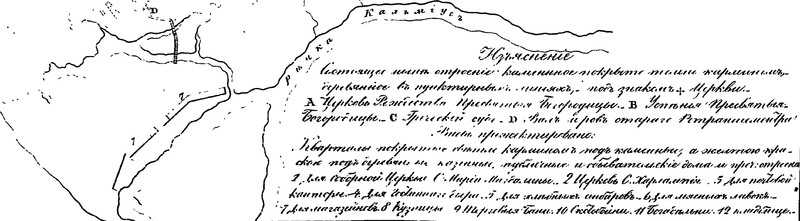 D
рѣка Кальміусъ
2
1
Изъясненіе
Состоящее нынѣ строеніе каменное покрыто темно карминомъ,
деревянное въ пунктирныхъ линіяхъ, подъ знакомъ + Церкви.
A Церковь Рожества Пресвятыя Богородицы. B Успенія Пресвятыя
Богородицы. C Греческій судъ. D. Валъ и ровъ стараго Ретраншамента
Вновь прожектировано:
Кварталы покрытые свѣтло карминомъ подъ каменныя, а желтою кра-
скою подъ деревянныя казенные, публичные и обывательскіе дома и проч: строен
1 Для Соборной Церкви С. Маріи Магдалины. 2 Церковь С. Харлампія. 3 Для почтовой
конторы. 4 Для Гостинаго двора. 5 Для хлѣбныхъ анбаровъ. 6 Для мясныхъ лавокъ.
7 Для магазейновъ 8 Кузницы 9 Торговыя Бани. 10 11 Богадѣльни. 12